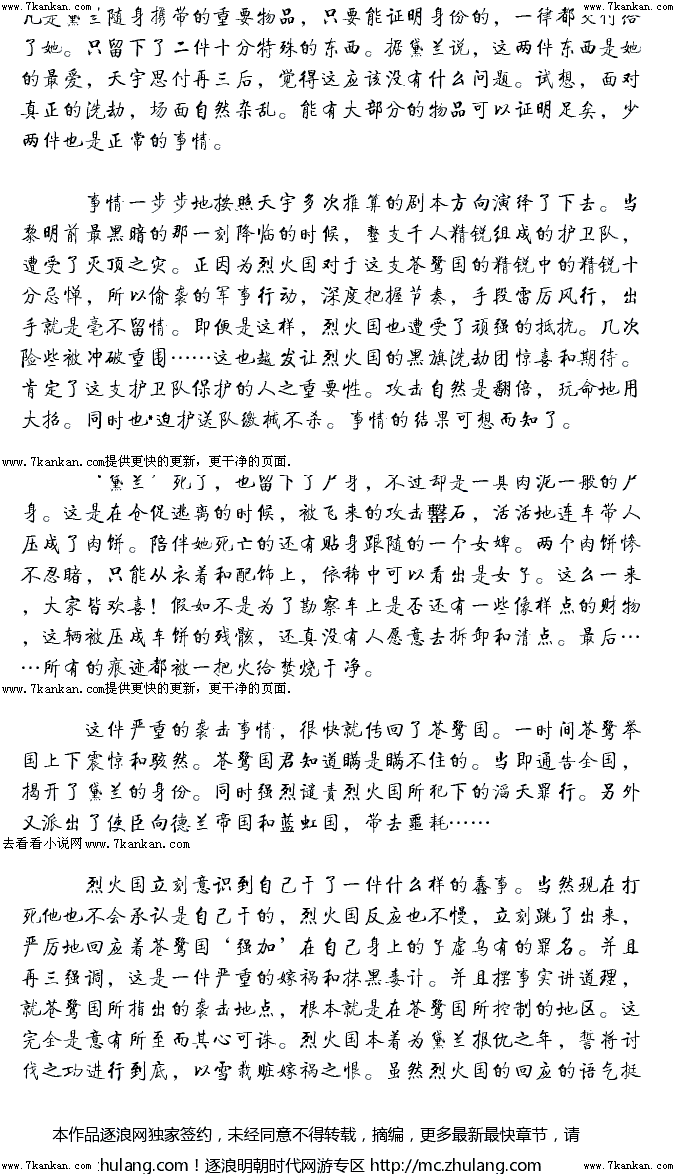 www.7kankan.com www.7kankan.com
凡是黛兰随身携带的重要物品，只要能证明身份的，一律都交付给
了她。只留下了二件十分特殊的东西。据黛兰说，这两件东西是她
的最爱，天宇思付再三后，觉得这应该没有什么问题。试想，面对
真正的洗劫，场面自然杂乱。能有大部分的物品可以证明足矣，少
两件也是正常的事情。
事情一步步地按照天宇多次推算的剧本方向演绎了下去。当
黎明前最黑暗的那一刻降临的时候，整支千人精锐组成的护卫队，
遭受了灭顶之灾。正因为烈火国对于这支苍鹭国的精锐中的精锐十
分忌惮，所以偷袭的军事行动，深度把握节奏，手段雷厉风行，出
手就是毫不留情。即便是这样，烈火国也遭受了顽强的抵抗。几次
险些被冲破重围……这也越发让烈火国的黑旗洗劫团惊喜和期待。
肯定了这支护卫队保护的人之重要性。攻击自然是翻倍，玩命地用
大招。同时也迫护送队缴械不杀。事情的结果可想而知了。
www.7kankan.com提供更快的更新，更干净的页面.
‘黛兰’死了，也留下了尸身，不过却是一具肉泥一般的尸
身。这是在仓促逃离的时候，被飞来的攻击礜石，活活地连车带人
压成了肉饼。陪伴她死亡的还有贴身跟随的一个女婢。两个肉饼惨
不忍暗，只能从衣着和配饰上，依稀中可以看出是女子。这么一来
，大家皆欢喜！假如不是为了勘察车上是否还有一些像样点的财物
，这辆被压成车饼的残骸，还真没有人愿意去拆卸和清点。最后…
…所有的痕迹都被一把火给焚烧干净。
www.7kankan.com提供更快的更新，更干净的页面.
这件严重的袭击事情，很快就传回了苍鹭国。一时间苍鹭举
国上下震惊和骇然。苍鹭国君知道瞒是瞒不住的。当即通告全国，
揭开了黛兰的身份。同时强烈谴责烈火国所犯下的滔天罪行。另外
又派出了使臣向德兰帝国和蓝虹国，带去噩耗……
去看看小说网www.7kankan.com
烈火国立刻意识到自己干了一件什么样的蠢事。当然现在打
死他也不会承认是自己干的，烈火国反应也不慢，立刻跳了出来，
严厉地回应着苍鹭国‘强加’在自己身上的子虚乌有的罪名。并且
再三强调，这是一件严重的嫁祸和抹黑毒计。并且摆事实讲道理，
就苍鹭国所指出的袭击地点，根本就是在苍鹭国所控制的地区。这
完全是意有所至而其心可诛。烈火国本着为黛兰报仇之年，誓将讨
伐之功进行到底，以雪栽赃嫁祸之恨。虽然烈火国的回应的语气挺
本作品逐浪网独家签约，未经同意不得转载，摘编，更多最新最快章节，请
www.7kankan.com zhulang.com！逐浪明朝时代网游专区http://mc.zhulang.com www.7kankan.com